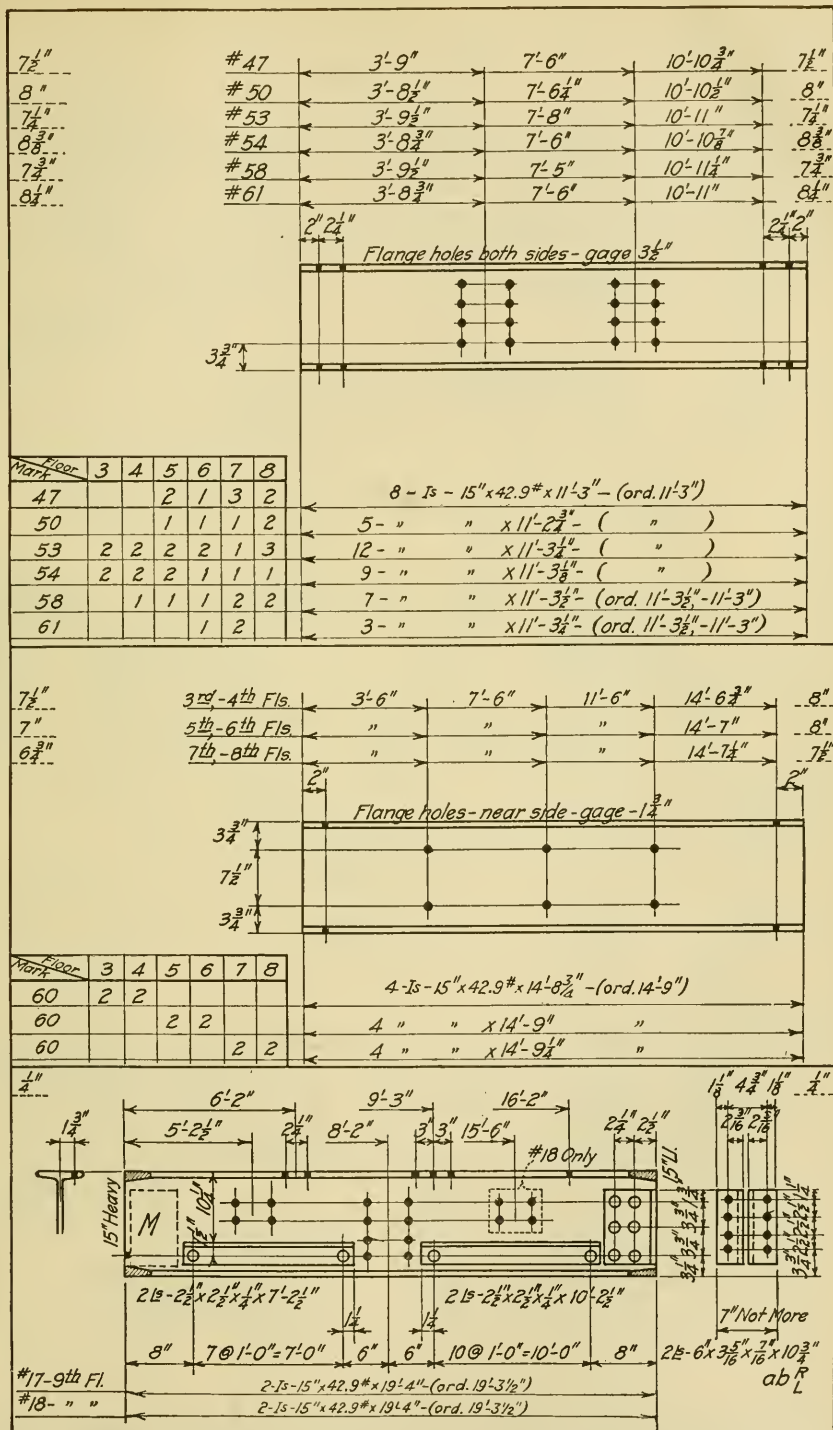 7½" #47 3'-9" 7'-6" 10'-10¾" 7½"
8" #50 3'-8½" 7'-6¼" 10'-10½" 8"
7¼" #53 3'-9½" 7'-8" 10'-11" 7¼"
8⅜" #54 3'-8¾" 7'-6" 10'-10⅞" 8⅜"
7¾" #58 3'-9½" 7'-5" 10'-11¼" 7¾"
8¼" #61 3'-8¾" 7'-6" 10'-11" 8¼"
2" 2¼" 2¼" 2"
Flange holes both sides - gage 3½"
3¾"
Mark Floor 3 4 5 6 7 8
47 2 1 3 2 8 - Is - 15" x 42.9# x 11'-3" - (ord. 11'-3")
50 1 1 1 2 5 - " " x 11'-2¾" - ( " )
53 2 2 2 2 1 3 12 - " " x 11'-3¼" - ( " )
54 2 2 2 1 1 1 9 - " " x 11'-3⅛" - ( " )
58 1 1 1 2 2 7 - " " x 11'-3½" - (ord. 11'-3½", -11'-3")
61 1 2 3 - " " x 11'-3¼" - (ord. 11'-3½", -11'-3")
7½" 3rd, -4th Fls. 3'-6" 7'-6" 11'-6" 14'-6¾" 8"
7" 5th, -6th Fls. " " " 14'-7" 8"
6¾" 7th, -8th Fls. " " " 14'-7¼" 7½"
2" 2"
Flange holes - near side - gage - 1¾"
3¾"
7½"
3¾"
Mark Floor 3 4 5 6 7 8
60 2 2 4 - Is - 15" x 42.9# x 14'-8¾" - (ord. 14'-9")
60 2 2 4 " " x 14'-9" "
60 2 2 4 " " x 14'-9¼" "
¼" 6'-2" 9'-3" 16'-2" 1⅛" 4¾" 1⅛" ¼"
1¾" 5'-2½" 2¼" 8'-2" 3" 3" 15'-6" 2¼" 2½" 2³⁄₁₆" 2³⁄₁₆"
#18 Only
15" Heavy M 10¼" 1½" 15" Li.
3¼" 3¾" 3¾" 3¼" 1¼" 2½" 2½" 2½" 3¾"
2 Ls - 2½" x 2½" x ¼" x 7'-2½" 2 Ls - 2½" x 2½" x ¼" x 10'-2½"
1¼" 1¼" 7" Not More
8" 7 @ 1'-0" = 7'-0" 6" 6" 10 @ 1'-0" = 10'-0" 8" 2 Ls - 6" x 3⁵⁄₁₆" x ⁷⁄₁₆" x 10¾"
ab R L
#17 - 9th Fl. 2 - Is - 15" x 42.9# x 19'-4" - (ord. 19'-3½")
#18 - " " 2 - Is - 15" x 42.9# x 19'-4" - (ord. 19'-3½")